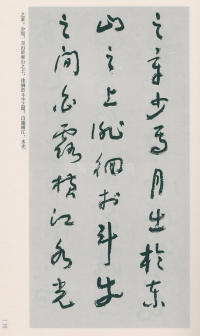 之章少焉月出於東
山之上徘徊於斗牛
之間白露橫江水光
之章。少焉，月出於東山之上，徘徊於斗牛之間。白露橫江，水光